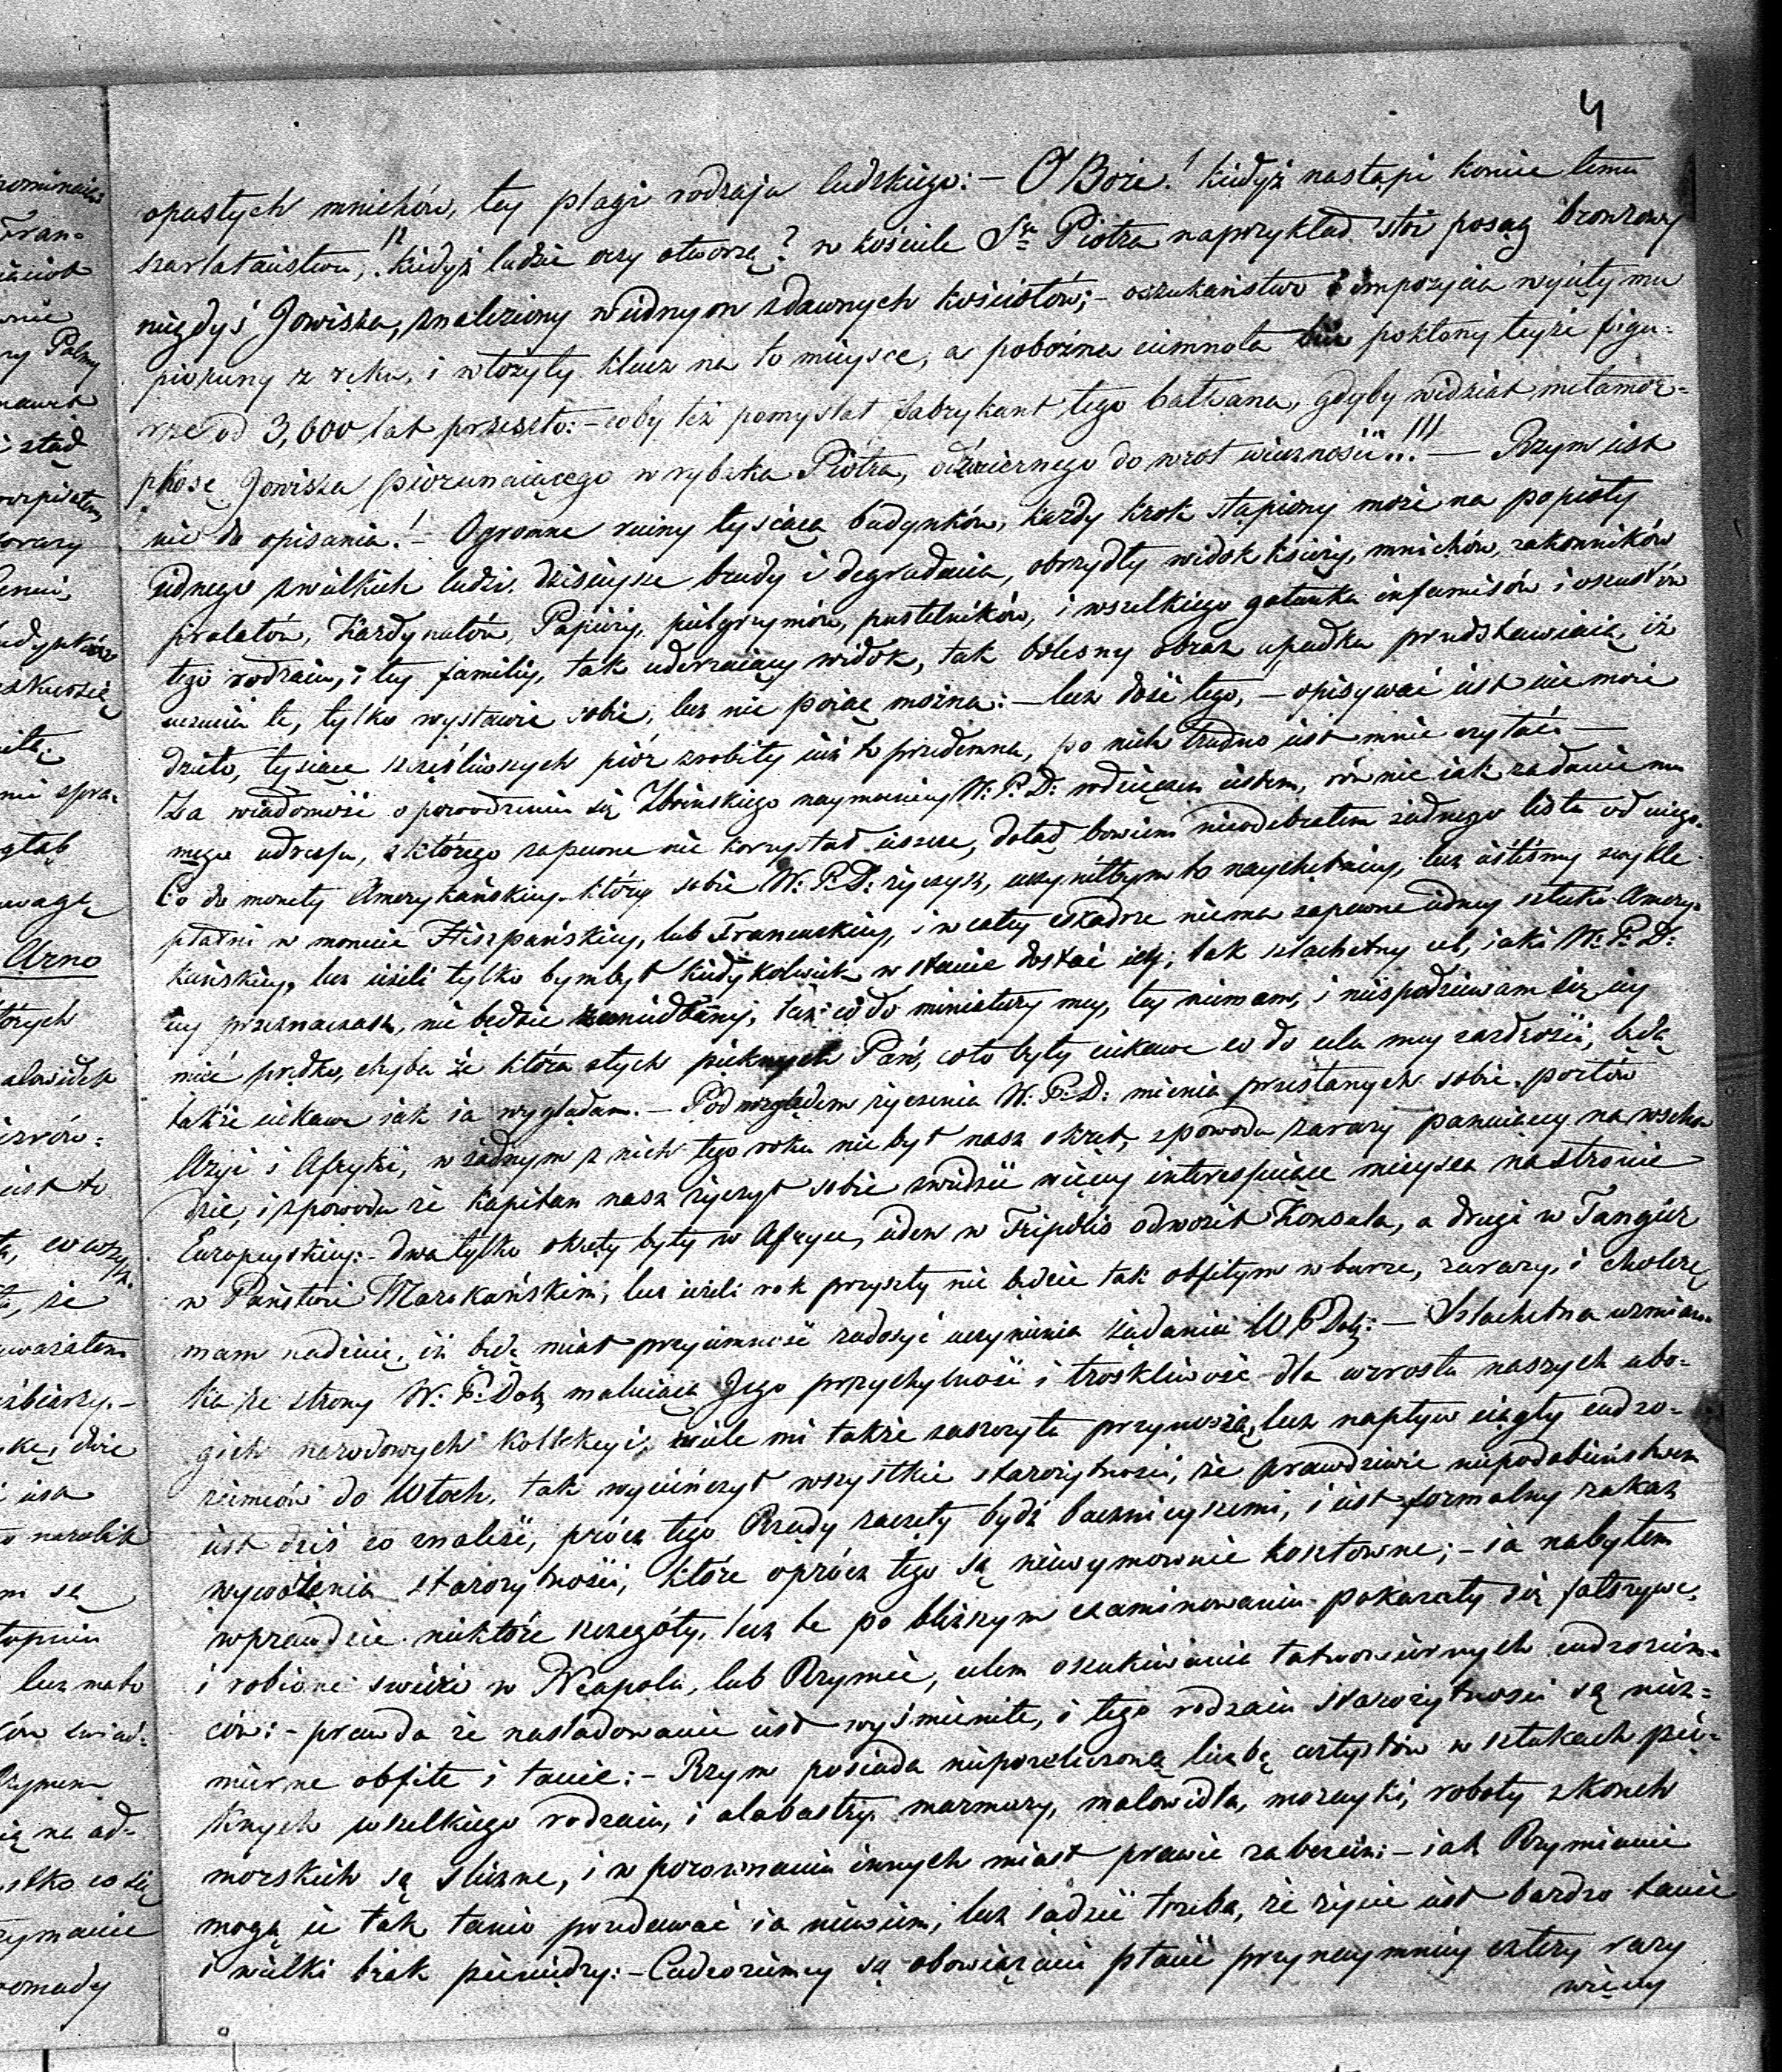 4
opasłych mnichów, tey plagi rodzaju ludzkiego:— O Boże! kiedyż nastąpi koniec temu
szarlataństwu,!! kiedyż ludzie oczy otworzą? w kościele Sgo Piotra naprzykład stoi posąg bronzowy
niegdyś Jowisza, znaleziony w iednym z dawnych kościołów;— oszukaństwo i impozycia wyięły mu
pioruny z ręku, i włożyły klucz na to mieysce, a pobożna ciemnota bije pokłony teyże figu-
rze od 3,000 lat przeszło:— coby też pomyślał fabrykant tego bałwana, gdyby widział metamor-
phosę Jowisza piorunuiącego w rybaka Piotra, odźwiernego do wrot wieczności..!!!— Rzym iest
nie do opisania!— Ogromne ruiny tysiąca budynków, każdy krok stąpiony może na popioły
iednego z wielkich ludzi, dzisieysze brudy i degradacia, obrzydły widok księży, mnichów, zakonników
prałatów, Kardynałów, Papieży, pielgrzymów, pustelników, i wszelkiego gatunku infamisów i oszustów
tego rodzaiu, i tey familiy, tak uderzaiący widok, tak bolesny obraz upadku przedstawiaią, iż
uczucia te, tylko wystawić sobie, lecz nie poiąć można:— lecz dość tego,— opisywać iest nie moie
dzieło, tysiące szczęśliwszych piór zrobiły iuż to przedemną, po nich trudno iest mnie czytać—
Za wiadomość o powodzeniu się Zboińskiego naymocniey W: P: D: wdzięczen iestem, równie iak za danie mu
mego adressu, z którego zapewne nie korzystał ieszcze, dotąd bowiem nieodebrałem żadnego listu od niego.
Co do monety Amerykańskiey którey sobie W: P: D: życzysz, uczyniłbym to naychętniey, lecz iesteśmy zwykle
płatni w monecie Hiszpańskiey, lub Francuskiey, i w całey eskadrze niema zapewne iedney sztuki Amery-
kańskiey, lecz ieżeli tylko bymbył kiedykolwiek w stanie dostać iey, tak szlachetny cel, iaki W: P: D:
iey przeznaczasz, nie będzie zaniedbany, lecz co do miniatury mey, tey niemam, i niespodziewam się iey
mieć prędko, chyba że która z tych pieknych Pań, co to były ciekawe co do celu mey zazdrości, będą
także ciekawe iak ia wyglądam.— Pod względem życzenia W: P: D: mienia przesłanych sobie portów
Azyi i Afryki, w żadnym z nich tego roku nie był nasz okręt, z powodu zarazy panuiącey na wscho-
dzie, i z powodu że kapitan nasz życzył sobie zwidzić więcey interessuiące mieysca na stronie
Europeyskiey:— dwa tylko okręty były w Afryce, ieden w Tripolis odwoził Konsula, a drugi w Tangier
w Państwie Marokańskim; lecz ieżeli rok przyszły nie będzie tak obfitym w burze, zarazy, i cholerę,
mam nadzieię, iż będę miał przyiemność zadosyć uczynienia żądaniu W P Dob:— Szlachetna wzmian-
ka ze strony W: P: Dob maluiąca Jego przychylność i troskliwość dla wzrostu naszych ubo-
gich narodowych kollekcyi, wiele mi także zaszczytu przynoszą, lecz napływ ciągły cudzo-
ziemców do Włoch, tak wycieńczył wszystkie starożytności, że prawdziwie niepodobieństwem
iest dziś co znaleść, prócz tego Rządy zaczęły bydź bacznieyszemi, i iest formalny zakaz
wywożenia starożytności, które oprócz tego są niewymownie kosztowne;— ia nabyłem
wprawdzie niektóre szczegóły, lecz te po bliższym examinowaniu pokazały się fałszywe,
i robione świeżo w Neapolu, lub Rzymie, celem oszukiwania łatwowiernych cudzoziem-
ców:— prawda że nasladowanie iest wyśmienite, i tego rodzaiu starożytności są niez-
mierne obfite i tanie:— Rzym posiada nieprzeliczoną liczbę artystów w sztukach pię-
knych wszelkiego rodzaiu, i alabastry, marmury, malowidła, mozayki, roboty z konch
morskich są sliczne, i w porownaniu innych miast prawie zabezcen:— iak Rzymianie
mogą ie tak tanio przedawać ia niewiem, lecz sądzić trzeba, że życie iest bardzo tanie
i wielki brak pieniędzy:— Cudzoziemcy są obowiązani płacić przynaymniey cztery razy
więcey